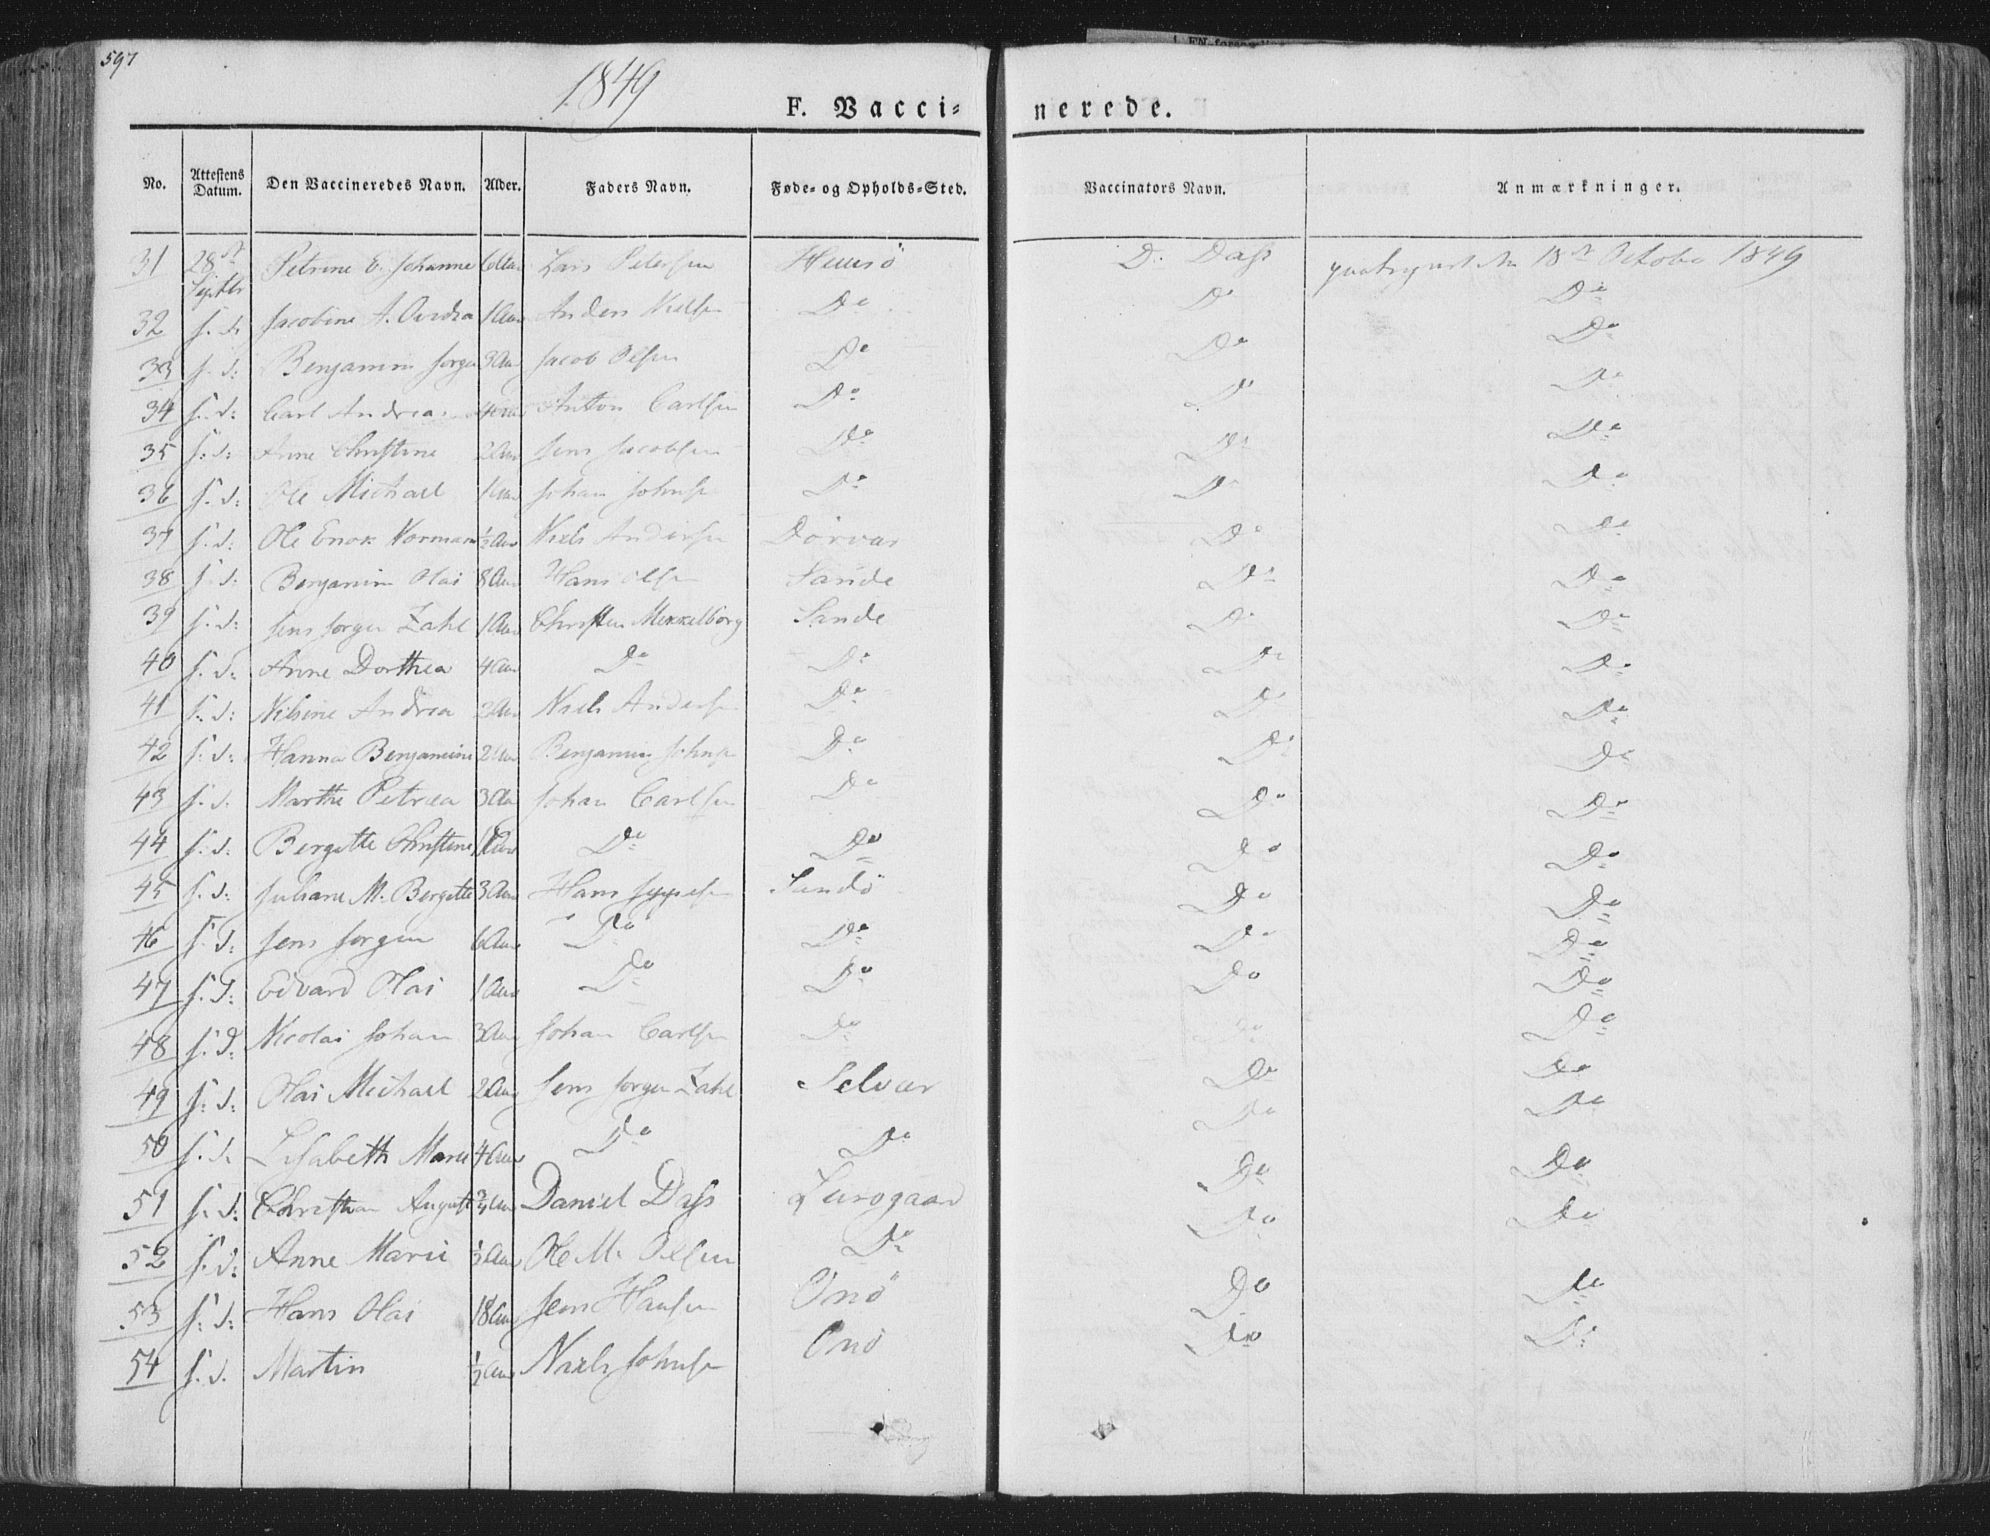 597
1849
F. Vacci= nerede.
No. Attestens Datum. Den Vaccineredes Navn. Alder. Faders Navn. Føde= og Opholds=Sted. Vaccinators Navn. Anmærkninger.
31 28de Septbr Petrine E. Johanne 6 Aar Lars Petersen D. Dass 18de October 1849
32 s. d. Jacobine A. 1 Aar Anders Nielsen Do Do Do
33 s. d: Benjamin Jørgen 3 Aar Jacob Olsen Do Do Do
34 s. d: Carl Andreas Anton Carlsen Do Do Do
35 s: d: Anne Christine 2 Aar Jens Jacobsen Do Do Do
36 s. d: Ole Michael 1 Aar Johan Johnsen Do Do Do
37 s. d: Ole Enok Norman ½ Aar Niels Andersen Dørvær Do Do
38 s. d: Benjamin Olai 8 Aar Hans Olsen Sande Do Do
39 s. d: Jens Jørgen Zahl 1 Aar Christen Mekkelborg Sande Do Do
40 s. d: Anne Dorthea 4 Aar Do Do Do Do
41 s. d: Nilsine Andrea 2 Aar Niels Andersen Do Do Do
42 s. d: Hanna Benjamine 2 Aar Benjamin Johnsen Do Do Do
43 s. d. Marthe Petræa 3 Aar Johan Carlsen Do Do Do
44 s. d. Bergitte Christine Do Do Do Do
45 s. d: Juliane M. Bergitte 3 Aar Hans Jeppesen Sandö Do Do
46 s. d: Jens Jørgen 6 Aar Do Do Do Do
47 s. d: Edvard Olai 1 Aar Do Do Do Do
48 s. d: Nicolai Johan 3 Aar Johan Carlsen Do Do Do
49 s: d: Olai Michael 2 Aar Jens Jørgen Zahl Selvær Do Do
50 s. d. Lisabeth Marie 4 Aar Do Do Do Do
51 s. d: Christian August ¾ Aar Daniel Dass Lurogaard Do Do
52 s. d: Anne Marie ½ Aar Ole M. Olsen Do Do Do
53 s: d: Hans Olai 18 Aar Jens Hansen Onö Do Do
54 s. d. Martin ½ Aar Niels Johnsen Onö Do Do